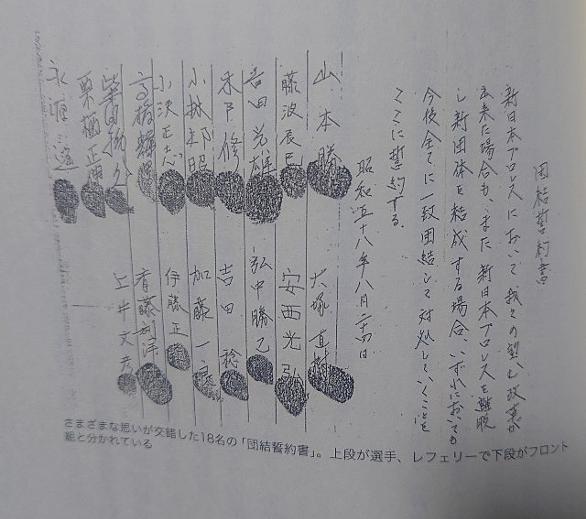 団結誓約書
新日本プロレスにおいて我々の望む改革が
出来た場合も、また新日本プロレスを離脱
し新団体を結成する場合、いずれにおいても
今後全てに一致団結して対処していくことを
ここに誓約する。
昭和五十八年八月二十四日
山本勝
藤波辰巳
吉田光雄
木戸修
小林邦昭
小沢正志
高橋輝男
柴田勝久
栗栖正伸
永源遥
大塚直樹
安西光弘
弘中勝己
吉田稔
加藤一良
伊藤正
斉藤
上井文彦
さまざまな思いが交錯した18名の「団結誓約書」。上段が選手、レフェリーで下段がフロント
組と分かれている